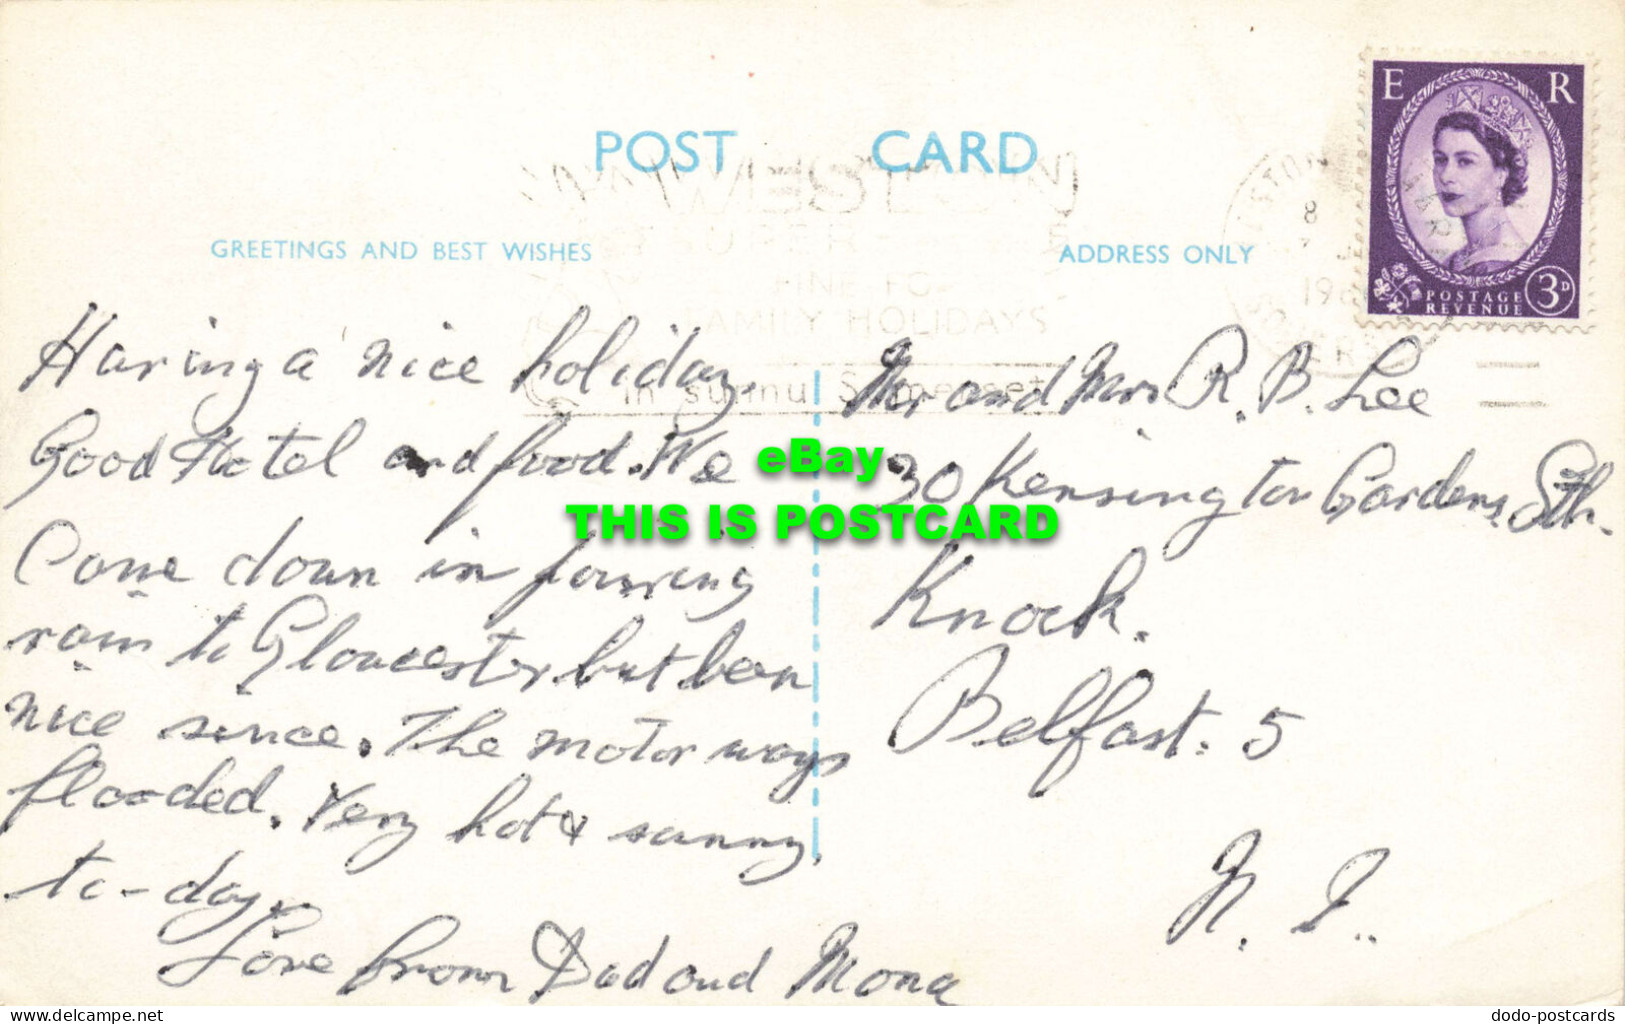 POST CARD
E R
POSTAGE
REVENUE
3D
8
19
WESTON
SUPER
FINE FOR
FAMILY HOLIDAYS
in sunny Somerset
GREETINGS AND BEST WISHES
ADDRESS ONLY
Having a nice holiday.
Good Hotel and food. We
Come down in pouring
rain to Gloucester but been
nice since. The motor ways
flooded. Very hot & sunny.
to-day.
Love from Dad and Mona
Mr and Mrs R. B. Lee
30 Kensington Gardens, Sth.
Knock.
Belfast. 5
N. I.
eBay
THIS IS POSTCARD
delcampe.net
dodo-postcards